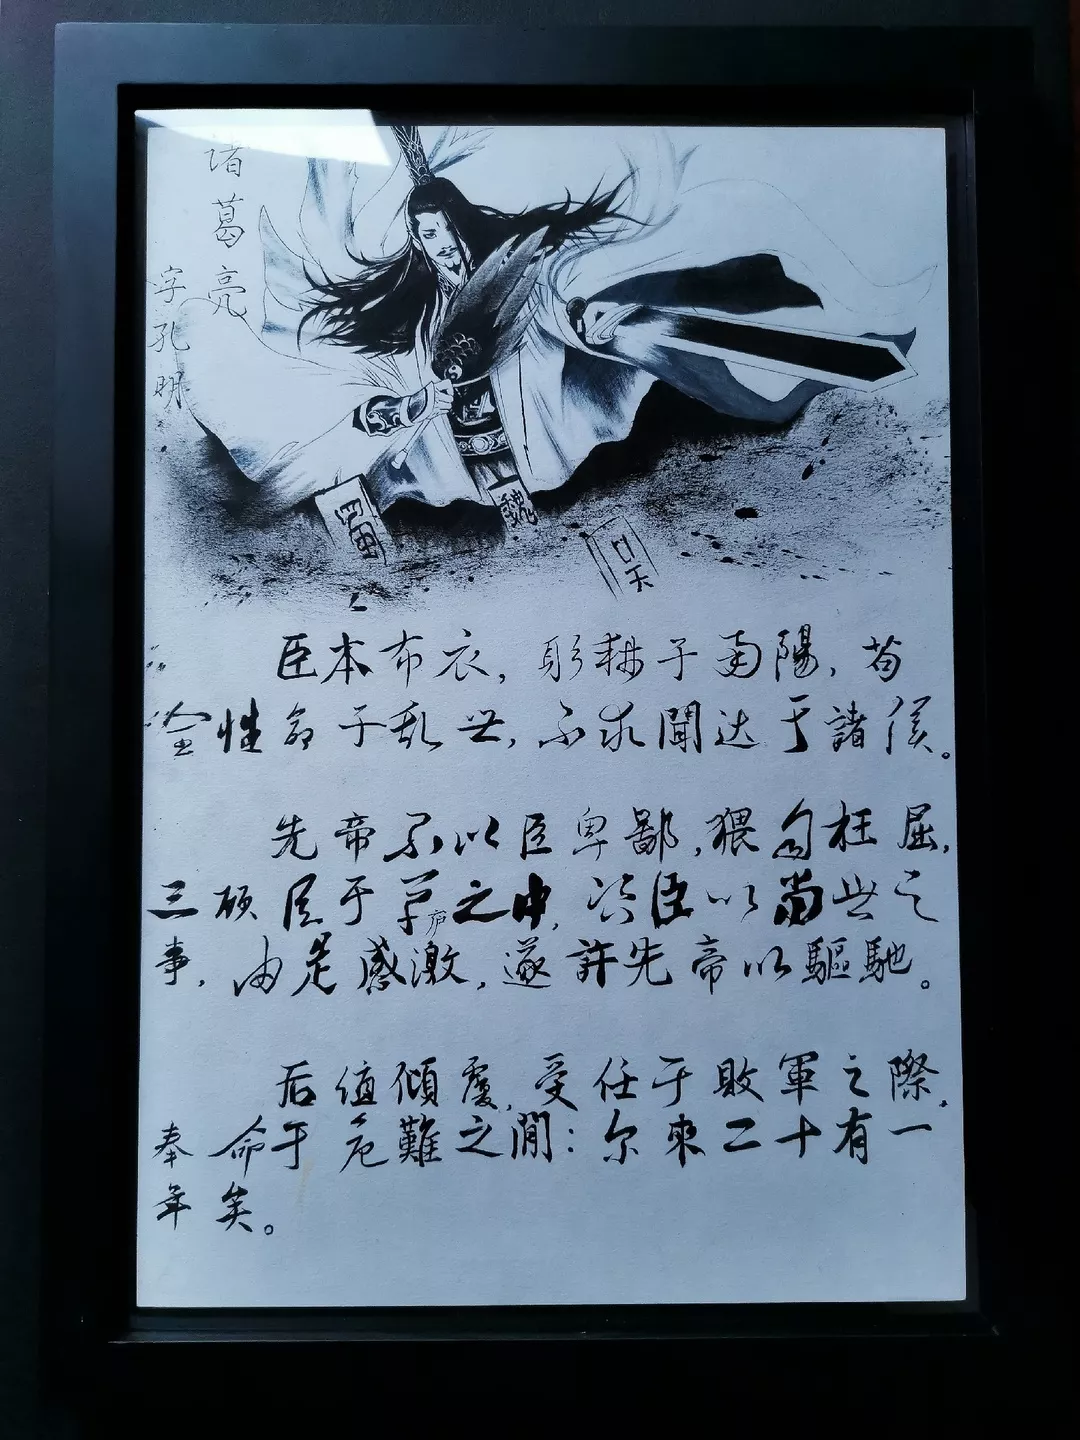 诸葛亮
字孔明
蜀
魏
吴
臣本布衣，躬耕于南陽，苟
全性命于乱世，不求聞达于諸侯。
先帝不以臣卑鄙，猥自枉屈，
三顾臣于草庐之中，咨臣以当世之
事，由是感激，遂許先帝以驅馳。
后值傾覆，受任于敗軍之際，
奉命于危難之間：尔來二十有一
年矣。